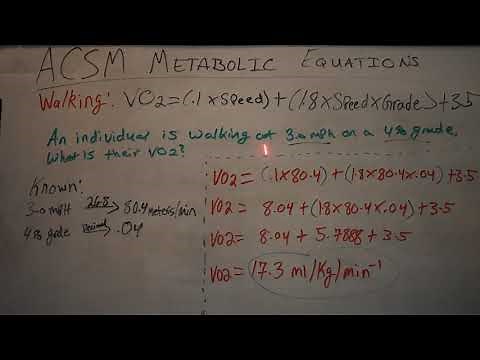 ACSM METABOLIC EQUATIONS
Walking: VO2=(.1 x Speed) + (1.8 x Speed x Grade) + 3.5
An individual is walking at 3.0 mph on a 4% grade,
What is their VO2?
Known:
3.0 mph 26.8 80.4 meters/min
4% grade Decimal .04
VO2 = (.1x80.4)+(1.8x80.4x.04)+3.5
VO2 = 8.04 + (1.8x80.4x.04)+3.5
VO2= 8.04 + 5.7888 + 3.5
VO2= 17.3 ml/Kg/min-1